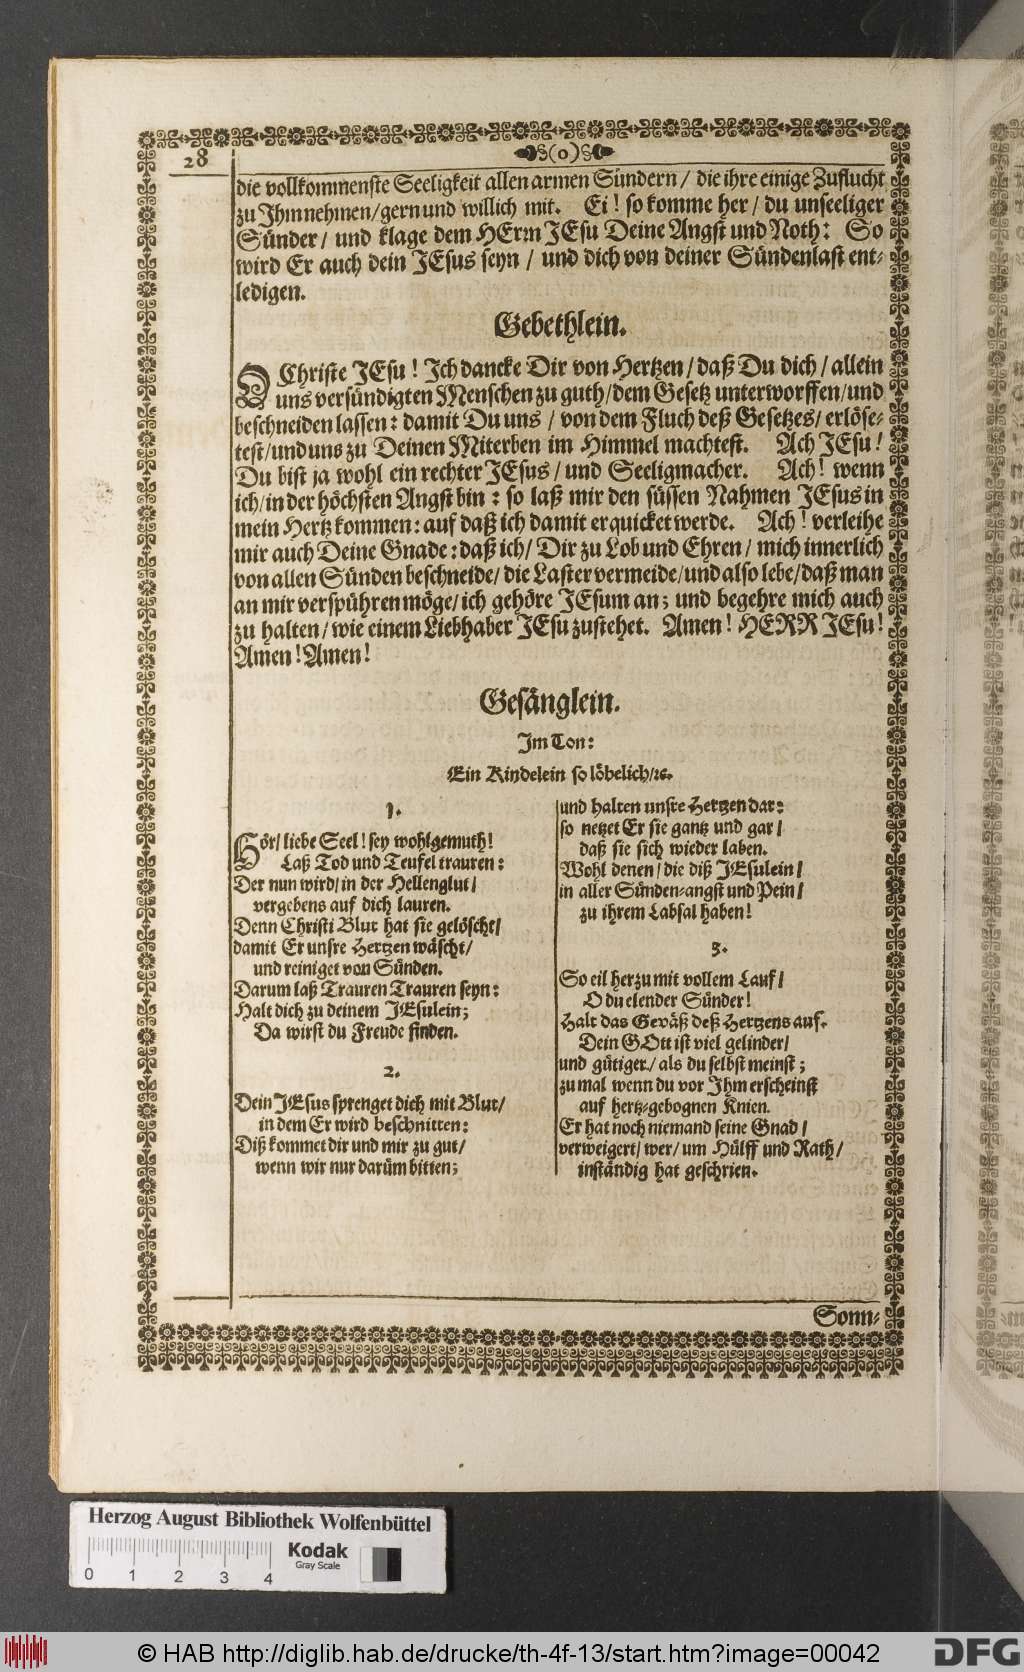 28
(o)
die vollkommenste Seeligkeit allen armen Sündern / die ihre einige Zuflucht
zu Ihm nehmen / gern und willich mit. Ei! so komme her / du unseeliger
Sünder / und klage dem HErrn JEsu Deine Angst und Noth: So
wird Er auch dein JEsus seyn / und dich von deiner Sündenlast ent-
ledigen.
Gebethlein.
O Christe JEsu! Ich dancke Dir von Hertzen / daß Du dich / allein
uns versündigten Menschen zu guth / dem Gesetz unterworffen / und
beschneiden lassen: damit Du uns / von dem Fluch deß Gesetzes / erlöse-
test / und uns zu Deinen Miterben im Himmel machtest. Ach JEsu!
Du bist ja wohl ein rechter JEsus / und Seeligmacher. Ach! wenn
ich / in der höchsten Angst bin: so laß mir den süssen Nahmen JEsus in
mein Hertz kommen: auf daß ich damit erquicket werde. Ach! verleihe
mir auch Deine Gnade: daß ich / Dir zu Lob und Ehren / mich innerlich
von allen Sünden beschneide / die Laster vermeide / und also lebe / daß man
an mir verspühren möge / ich gehöre JEsum an; und begehre mich auch
zu halten / wie einem Liebhaber JEsu zustehet. Amen! HERR JEsu!
Amen! Amen!
Gesänglein.
Im Ton:
Ein Kindelein so löbelich / ꝛc.
1.
Hör / liebe Seel! sey wohlgemuth!
Laß Tod und Teufel trauren:
Der nun wird / in der Hellenglut /
vergebens auf dich lauren.
Denn Christi Blut hat sie gelöscht /
damit Er unsre Hertzen wäscht /
und reiniget von Sünden.
Darum laß Trauren Trauren seyn:
Halt dich zu deinem JEsulein;
Da wirst du Freude finden.
2.
Dein JEsus sprenget dich mit Blut /
in dem Er wird beschnitten:
Diß kommet dir und mir zu gut /
wenn wir nur darüm bitten;
und halten unsre Hertzen dar:
so netzet Er sie gantz und gar /
daß sie sich wieder laben.
Wohl denen / die diß JEsulein /
in aller Sünden-angst und Pein /
zu ihrem Labsal haben!
3.
So eil herzu mit vollem Lauf /
O du elender Sünder!
Halt das Geväß deß Hertzens auf.
Dein GOtt ist viel gelinder /
und gütiger / als du selbst meinst;
zumal wenn du vor Ihm erscheinst
auf hertz-gebognen Knien.
Er hat noch niemand seine Gnad /
verweigert / wer / um Hülff und Rath /
inständig hat geschrien.
Sonn-
Herzog August Bibliothek Wolfenbüttel
Kodak
Gray Scale
0 1 2 3 4
© HAB http://diglib.hab.de/drucke/th-4f-13/start.htm?image=00042
DFG